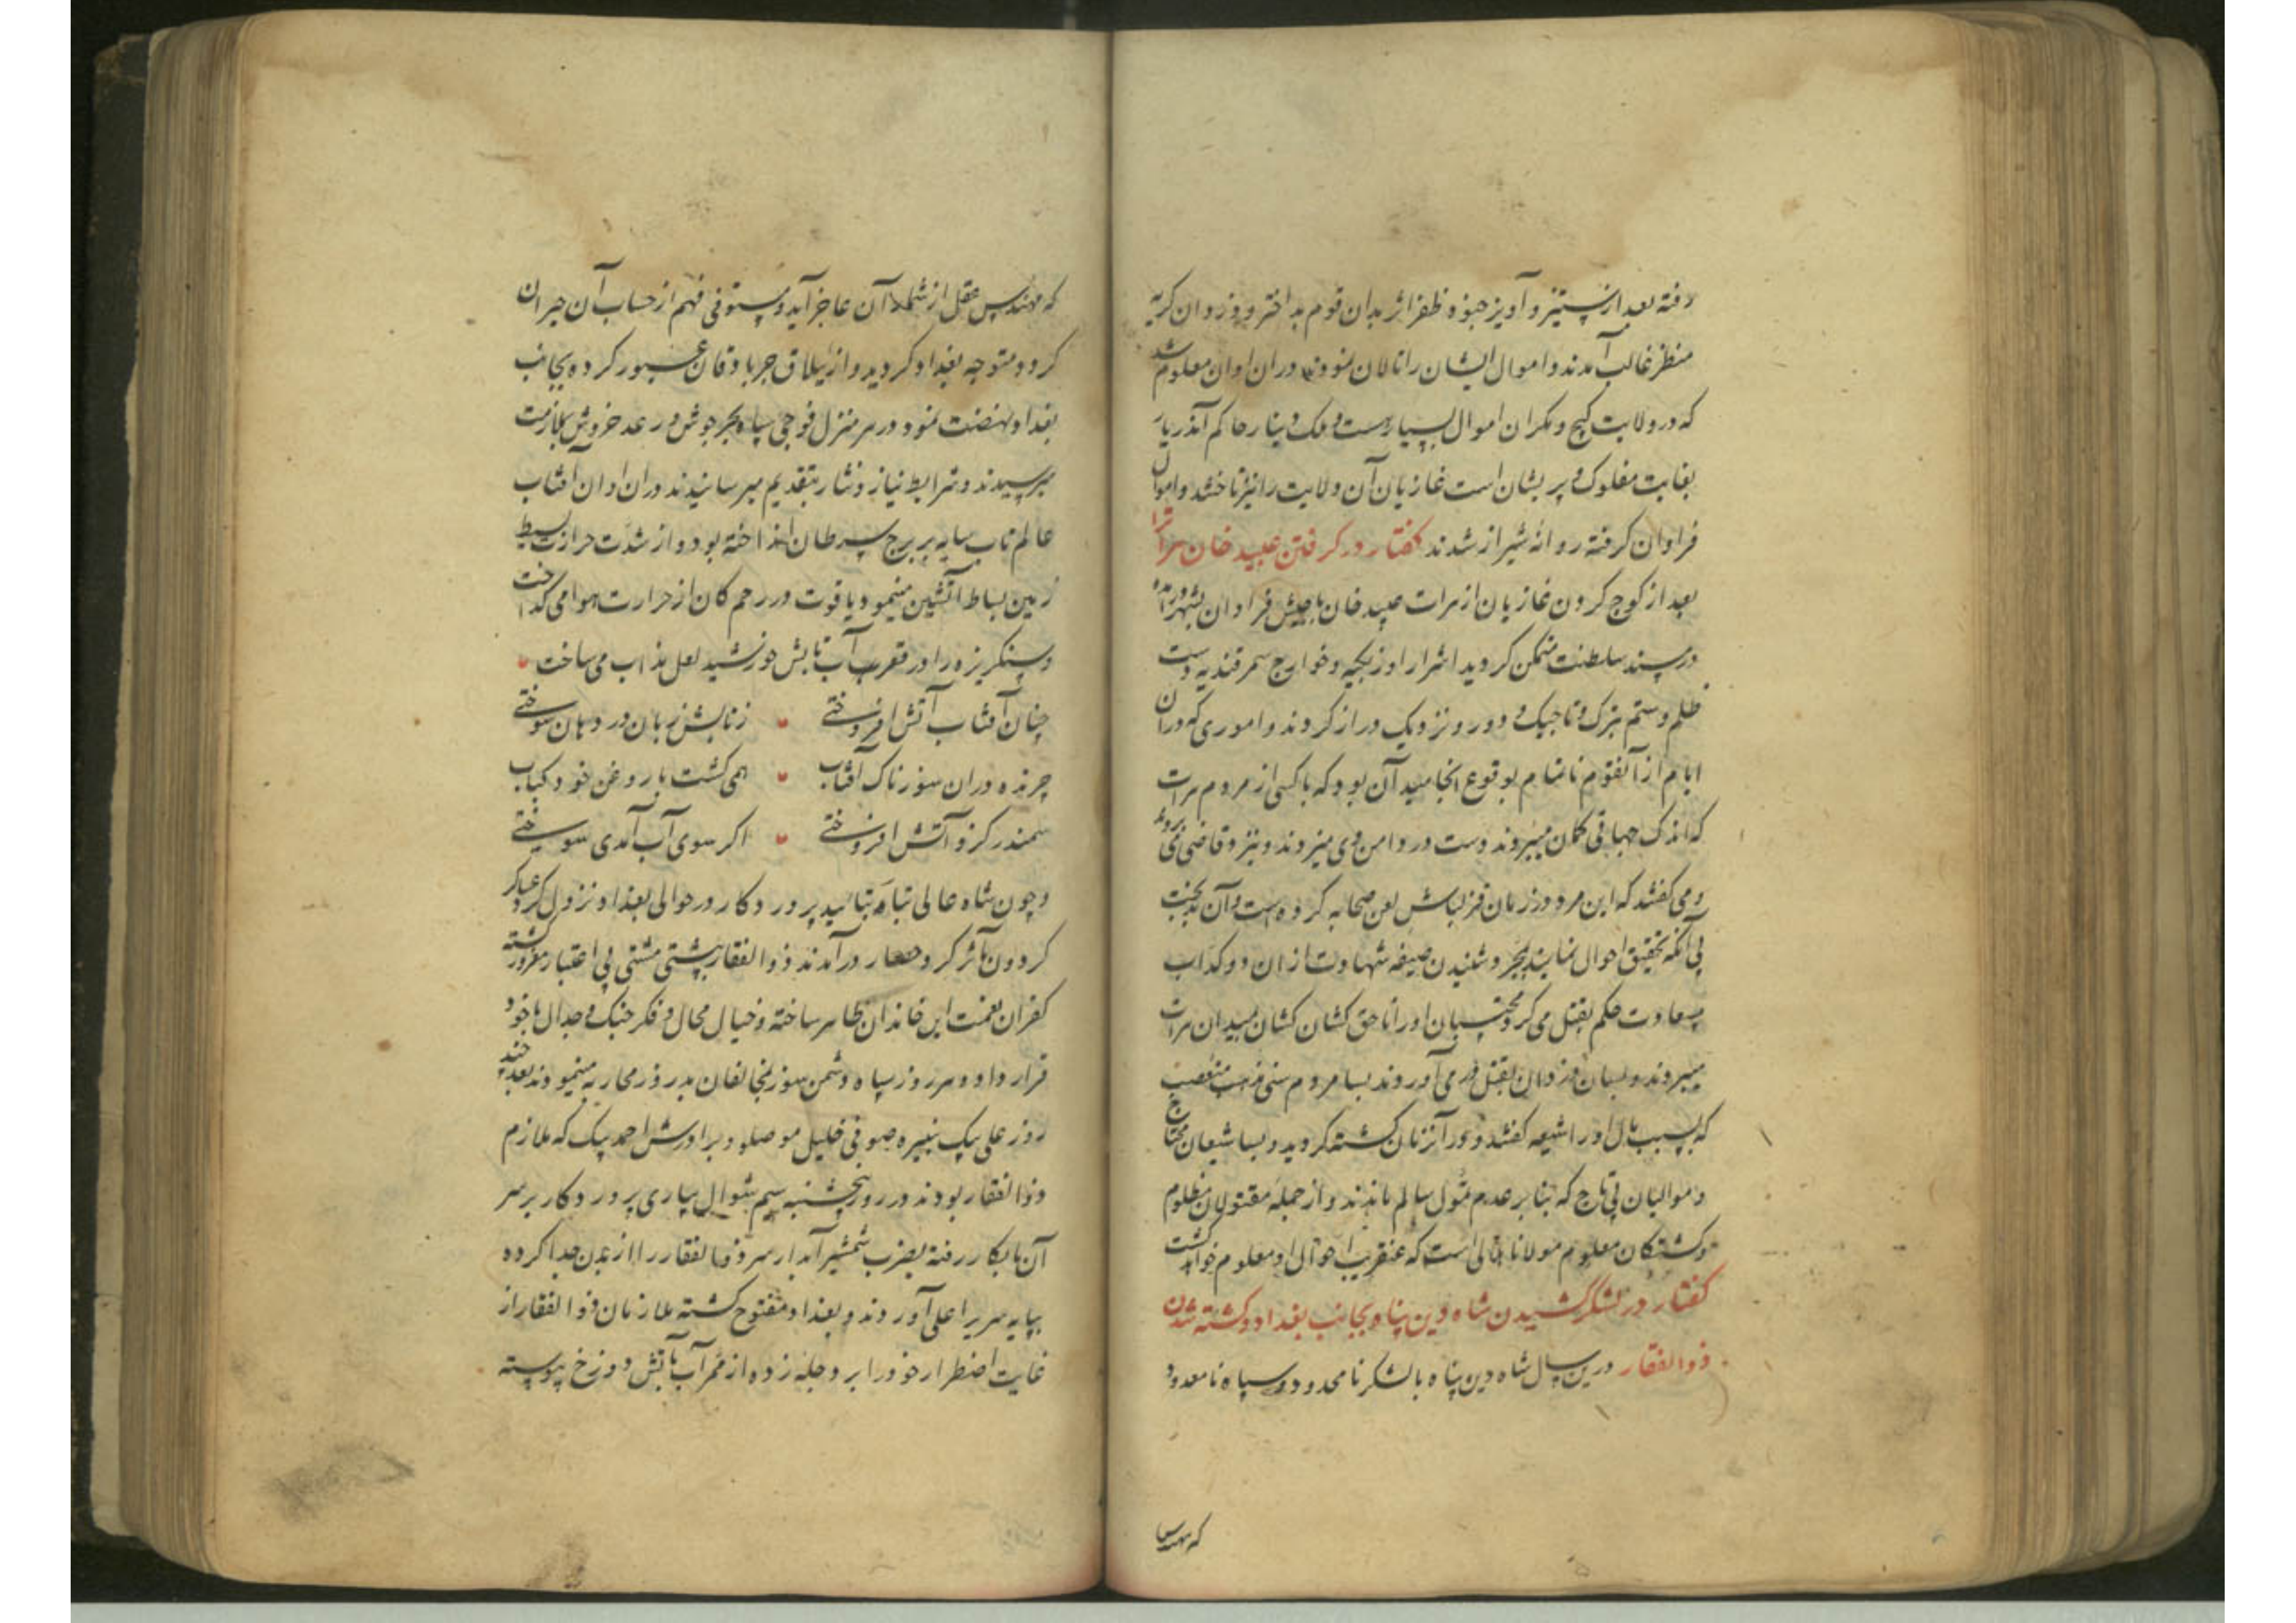 رفته بعد از ستیز و آویز جنود ظفر اثر بدان قوم بد اختر و دزدان کریه
منظر غالب آمدند و اموال ایشان را تالان نمودند و در آن اوان معلوم شد
که در ولایت کیج و مکران اموال بسیارست و ملک دینار حاکم آنذریار
بغایت مفلوک و پریشان است غازیان آن ولایت را نیز تاختند و اموال
فراوان کرفته روانه شیراز شدند کفتار در کرفتن عبید خان هراترا
بعد از کوچ کردن غازیان از هرات عبید خان با جیش فراوان بشهر در آمده
در مسند سلطنت متمکن کردید اشرار اوزبکیه و خوارج سمرقندیه دست
ظلم و ستم بترک و تاجیک و دور و نزدیک دراز کردند و اموری که در آن
ایام از آنقوم ناتمام بوقوع انجامید آن بود که با کسی از مردم هرات
که اندک جهاتی کمان میبردند دست در دامن وی میزدند و نزد قاضی می بردند
و می کفتند که این مرد در زمان قزلباش لعن صحابه کرده است و آن بدبخت
بی آنکه تحقیق احوال نماید بمجرد شنیدن صیغه شهادت از ان دو کذاب
بسعادت حکم بقتل می کرد محتسبان او را ناحق کشان کشان بمیدان هرات
میبردند و بسان دزدان بقتل در می آوردند بسا مردم سنی مذهب متعصب
که بسبب مال او را شیعه کفتند و در آنزمان کشته کردید و بسا شیعان محتاج
و موالیان بی تاج که بنا بر عدم تمول سالم ماندند و از جمله مقتولان مظلوم
و کشتکان معلوم مولانا هلالی است که عنقریب احوال او معلوم خواهد کشت
کفتار در لشکر کشیدن شاه دین پناه بجانب بغداد و کشته شدن
ذوالفقار درین سال شاه دین پناه با لشکر نامحدود و سپاه نامعدود
که مهندس
که مهندس عقل از شمار آن عاجز آید و مستوفی فهم از حساب آن حیران
کردد متوجه بغداد کردید و از ییلاق جرباذقان عبور کرده بجانب
بغداد نهضت نمود در هر منزل فوجی سپاه بحر جوش رعد خروش بملازمت
میرسیدند و شرایط نیاز و نثار بتقدیم میرسانیدند در آن اوان آفتاب
عالم تاب سایه بر برج سرطان انداخته بود و از شدت حرارت بسیط
زمین بساط آتشین مینمود یاقوت در رحم کان از حرارت هوا می کداخت
و سنکریزه را در قعر آب تابش خورشید لعل مذاب می ساخت
چنان آفتاب آتش افروختی زتابش زبان در دهان سوختی
چرنده در ان سوزناک آفتاب همی کشت با روغن خود کباب
سمندر کزو آتش افروختی اکر سوی آب آمدی سوختی
و چون شاه عالی تبار بتائید پروردکار در حوالی بغداد نزول کرد عساکر
کردون مآثر کرد حصار در آمدند ذوالفقار بپشتی مشتی بی اعتبار مغرور کشته
کفران نعمت این خاندان ظاهر ساخته و خیال محال و فکر جنک و جدال با خود
قرار داد و هر روز سپاه دشمن سوز بمخالفان بد روز محاربه مینمودند بعد چند
روز علی بیک نبیره صوفی خلیل موصلو و برادرش احمد بیک که ملازم
ذوالفقار بودند در روز پنجشنبه سیم شوال بیاری پروردکار بر سر
آن نابکار رفته بضرب شمشیر آبدار سر ذوالفقار را از بدن جدا کرده
بپایه سریر اعلی آوردند و بغداد مفتوح کشته ملازمان ذوالفقار از
غایت اضطرار خود را بر دجله زده از ممر آب بآتش دوزخ پیوسته